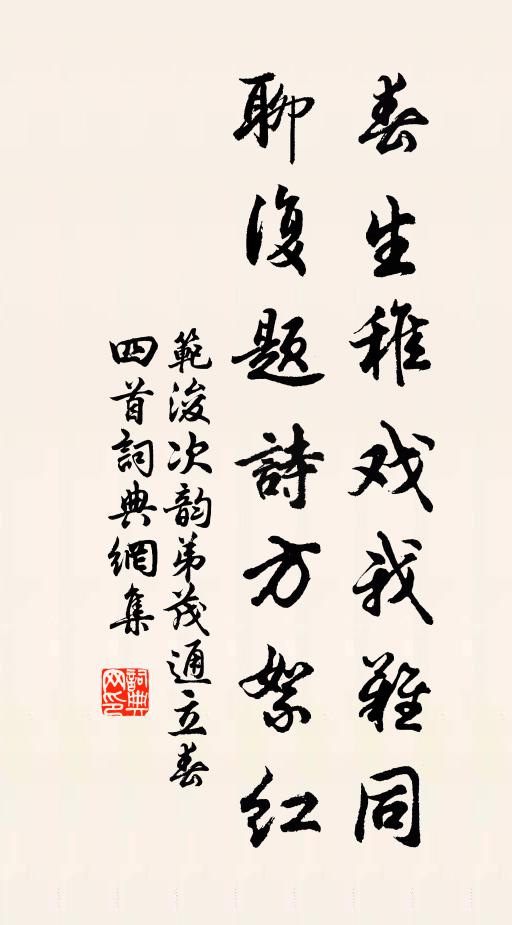 春生稚戏我難同
聊復題詩方絮红
範浚次韵弟茂通立春
四首詞典網集
詞典网印